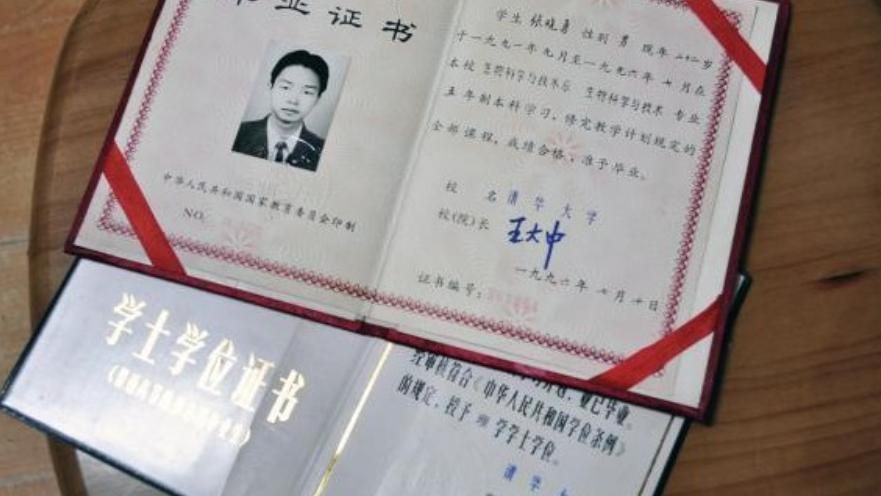 毕业证书
中华人民共和国国家教育委员会印制
NO.
学生 张晓勇 性别 男 现年 二十二岁
于一九九一年九月至一九九六年 七月在
本校 生物科学与技术系 生物科学与技术 专业
五年制本科学习，修完教学计划规定的
全部课程，成绩合格，准予毕业。
校 名 清华大学
校(院)长 王大中
一九九六年 七月 十日
证书编号：
学士学位证书
业已毕业。
经审核符合《中华人民共和国学位条例》
的规定，授予 理 学学士学位。
清 华